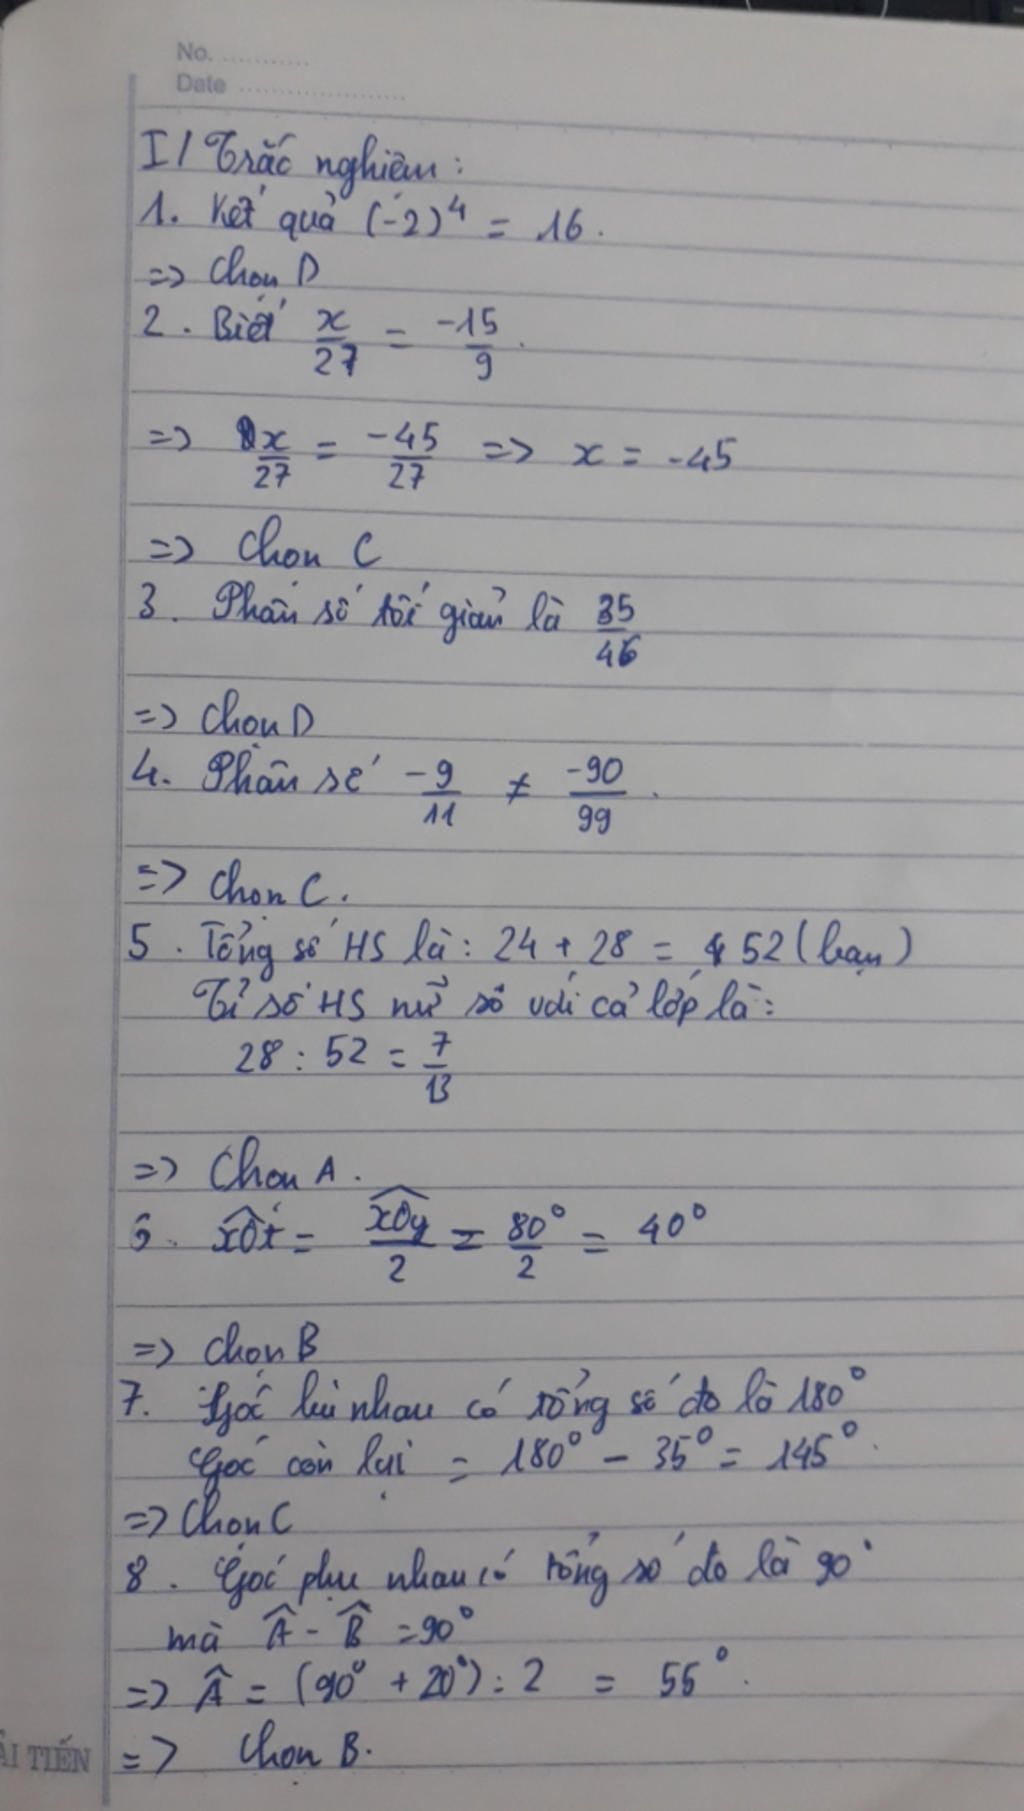 No. ............
Date .......................
I/ Trắc nghiệm:
1. Kết quả (-2)⁴ = 16.
=> Chọn D
2. Biết x/27 = -15/9.
=> x/27 = -45/27 => x = -45
=> Chọn C
3. Phân số tối giản là 35/46
=> Chọn D
4. Phân số -9/11 ≠ -90/99.
=> Chọn C.
5. Tổng số HS là: 24 + 28 = 52 (bạn)
Tỉ số HS nữ so với cả lớp là:
28 : 52 = 7/13
=> Chọn A.
6. xOt = xOy/2 = 80°/2 = 40°
=> Chọn B
7. Góc bù nhau có tổng số đo là 180°
Góc còn lại = 180° - 35° = 145°.
=> Chọn C
8. Góc phụ nhau có tổng số đo là 90°
mà Â - B̂ = 90°
=> Â = (90° + 20°) : 2 = 55°.
=> Chọn B.
ẢI TIẾN